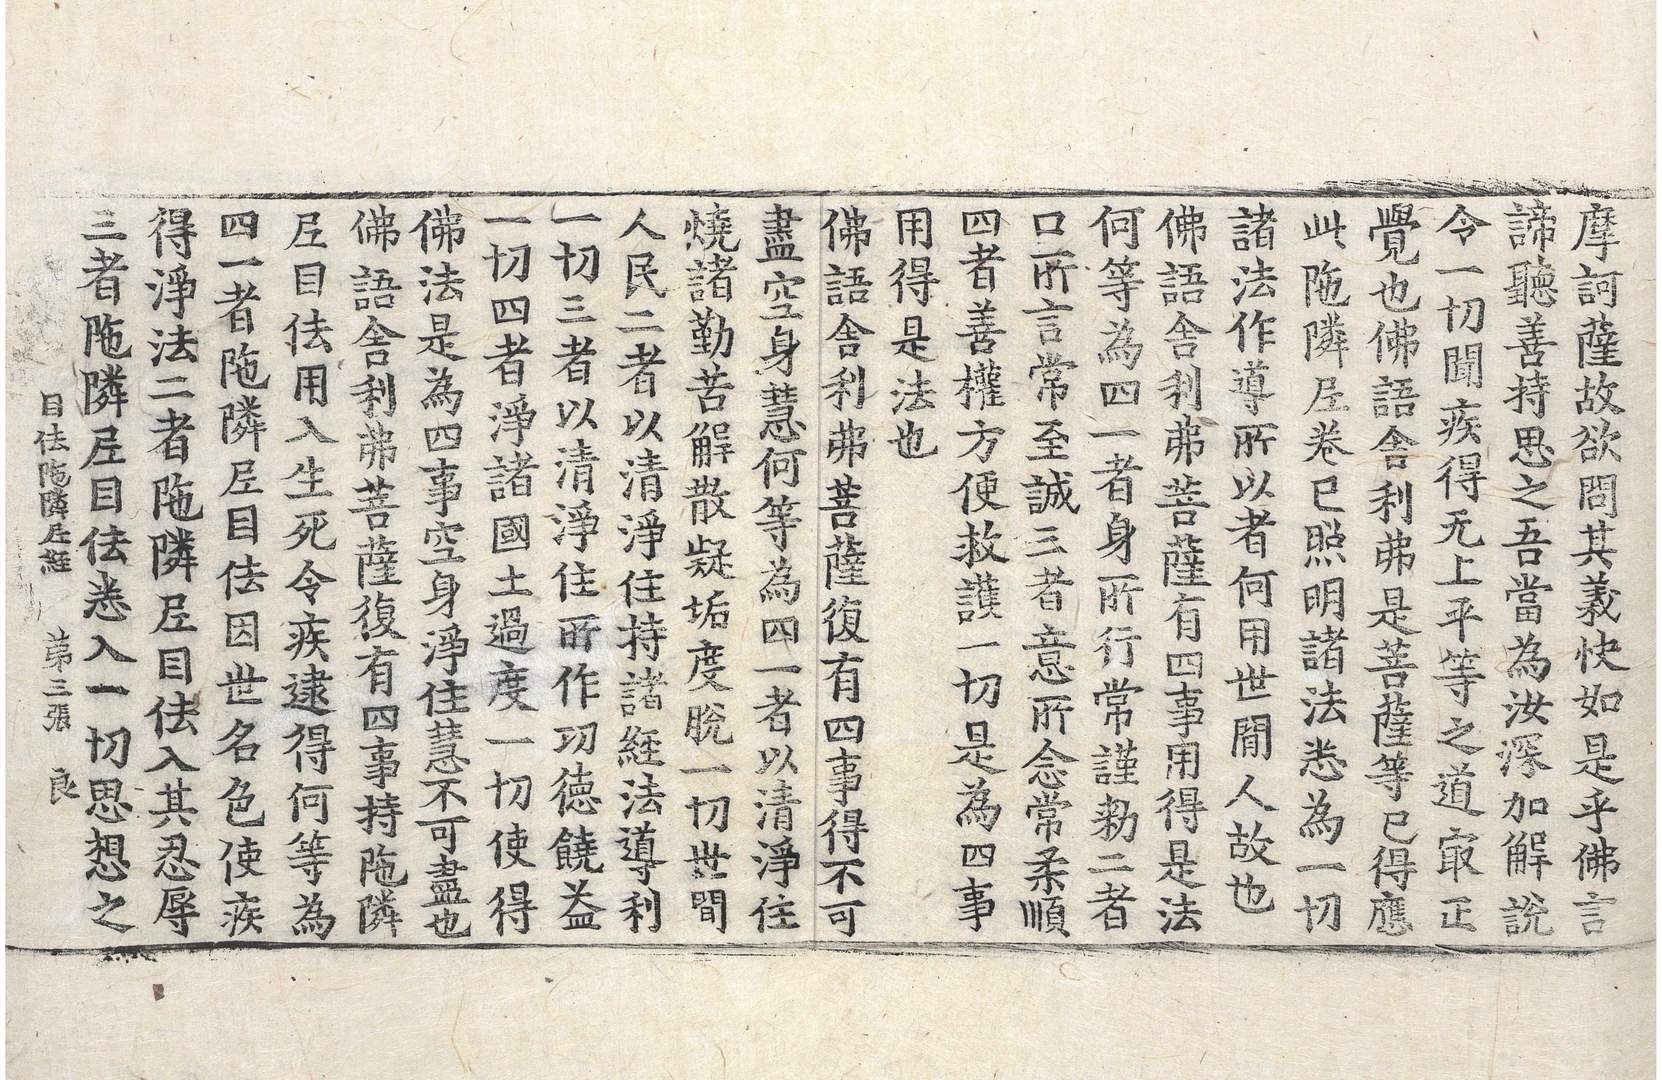 摩訶薩故欲問其義快如是乎佛言
諦聽善持思之吾當為汝深加解說
令一切聞疾得无上平等之道㝡正
覺也佛語舍利弗是菩薩等已得應
此陁隣𡰱卷已照明諸法悉為一切
諸法作導所以者何用世閒人故也
佛語舍利弗菩薩有四事用得是法
何等為四一者身所行常謹勑二者
口所言常至誠三者意所念常柔順
四者善權方便救護一切是為四事
用得是法也
佛語舍利弗菩薩復有四事得不可
盡空身慧何等為四一者以清淨住
燒諸勤苦解散疑垢度脫一切世間
人民二者以清淨住持諸經法導利
一切三者以清淨住所作功德饒益
一切四者淨諸國土過度一切使得
佛法是為四事空身淨住慧不可盡也
佛語舍利弗菩薩復有四事持陁隣
𡰱目佉用入生死令疾逮得何等為
四一者陁隣𡰱目佉因世名色使疾
得淨法二者陁隣𡰱目佉入其忍辱
三者陁隣𡰱目佉悉入一切思想之
目佉陁隣𡰱經 第三張 良